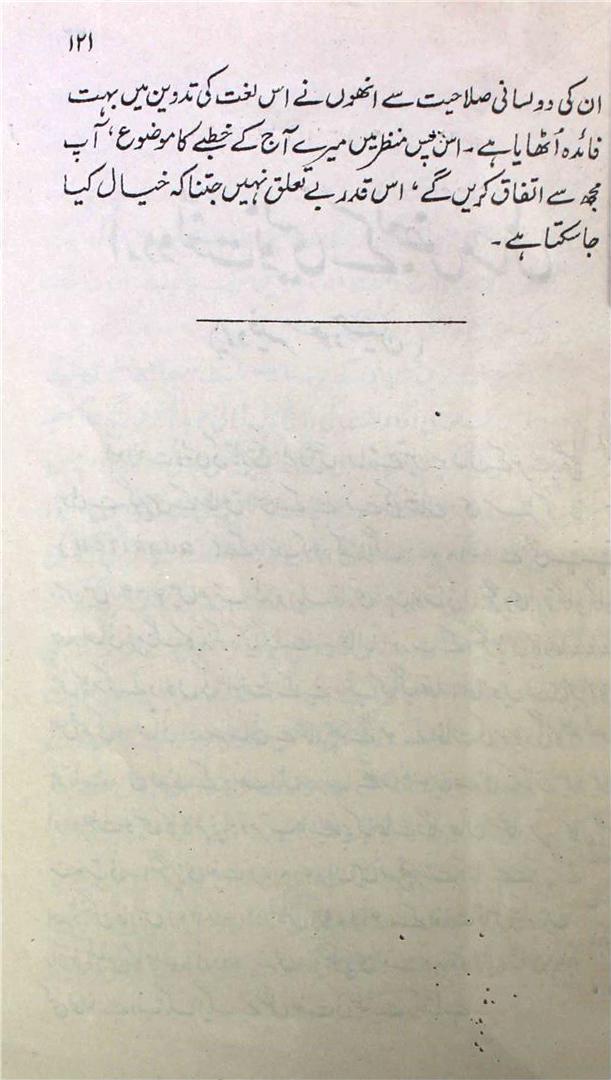 ۱۲۱
ان کی دولسانی صلاحیت سے انھوں نے اس لغت کی تدوین میں بہت
فائدہ اُٹھایا ہے۔ اس پس منظر میں میرے آج کے خطبے کا موضوع، آپ
مجھ سے اتفاق کریں گے، اس قدر بے تعلق نہیں جتنا کہ خیال کیا
جاسکتا ہے۔